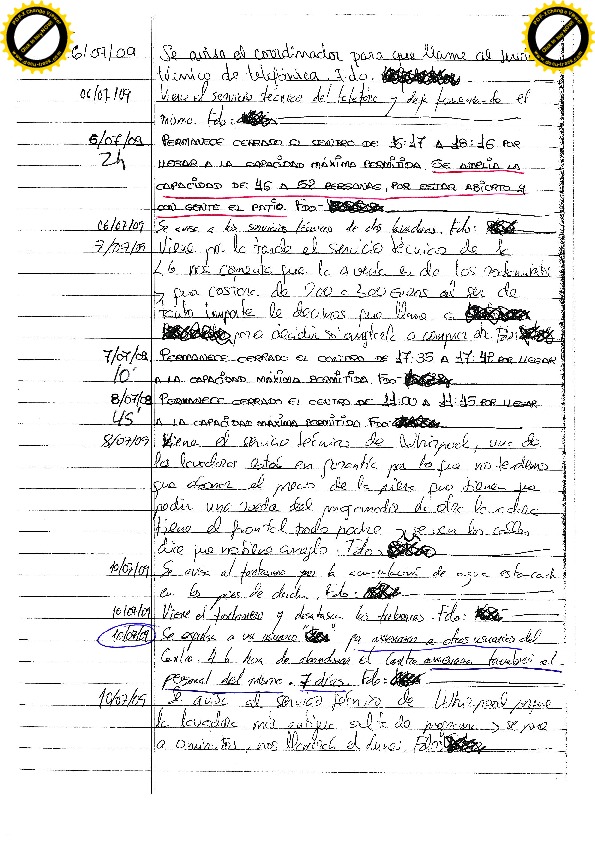 6/07/09 Se avisa el coordinador para que llame al
técnico de telefónica. Fdo.
06/07/09 Viene el servicio técnico del teléfono y deja funcionando el
mismo. Fdo:
6/07/09 PERMANECE CERRADO EL CENTRO DE 16:17 A 18:16 POR
2h LLEGAR A LA CAPACIDAD MÁXIMA PERMITIDA. SE AMPLÍA LA
CAPACIDAD DE 46 A 52 PERSONAS, POR ESTAR ABIERTO Y
CON GENTE EL PATIO. Fdo:
06/07/09 Se avisa a los servicios técnicos de dos lavadoras. Fdo:
7/07/09 Viene por la tarde el servicio técnico de la
LG me comenta que la avería es de los
y que costaría de 200 a 300 euros al ser de
tanto importe le decimos que llame a
para decidir si arreglarla o comprar otra. Fdo:
7/07/09 PERMANECE CERRADO EL CENTRO DE 17:35 A 17:42 POR LLEGAR
10' A LA CAPACIDAD MÁXIMA PERMITIDA. Fdo:
8/07/09 PERMANECE CERRADO EL CENTRO DE 11:00 A 11:45 POR LLEGAR
45' A LA CAPACIDAD MÁXIMA PERMITIDA. Fdo:
8/07/09 Viene el servicio técnico de Whirpool, una de
las lavadoras está en garantía por lo que no tendremos
que abonar el precio de la pieza que tienen que
pedir una rueda del programador de otra lavadora
tiene el frontal todo podre y se ven los cables
dice que no tiene arreglo. Fdo:
10/07/09 Se avisa al fontanero por la acumulación de agua estancada
en los pies de ducha. Fdo:
10/07/09 Viene el fontanero y desatasca las tuberías. Fdo:
10/07/09 Se expulsa a un usuario por amenazar a otros usuarios del
Centro. A la hora de abandonar el Centro amenaza también al
personal del mismo. 7 días. Fdo:
10/07/09 Se avisa al servicio técnico de Whirpool porque
la lavadora más antigua salta de programa y se para
a minutos, nos llamará el lunes. Fdo: